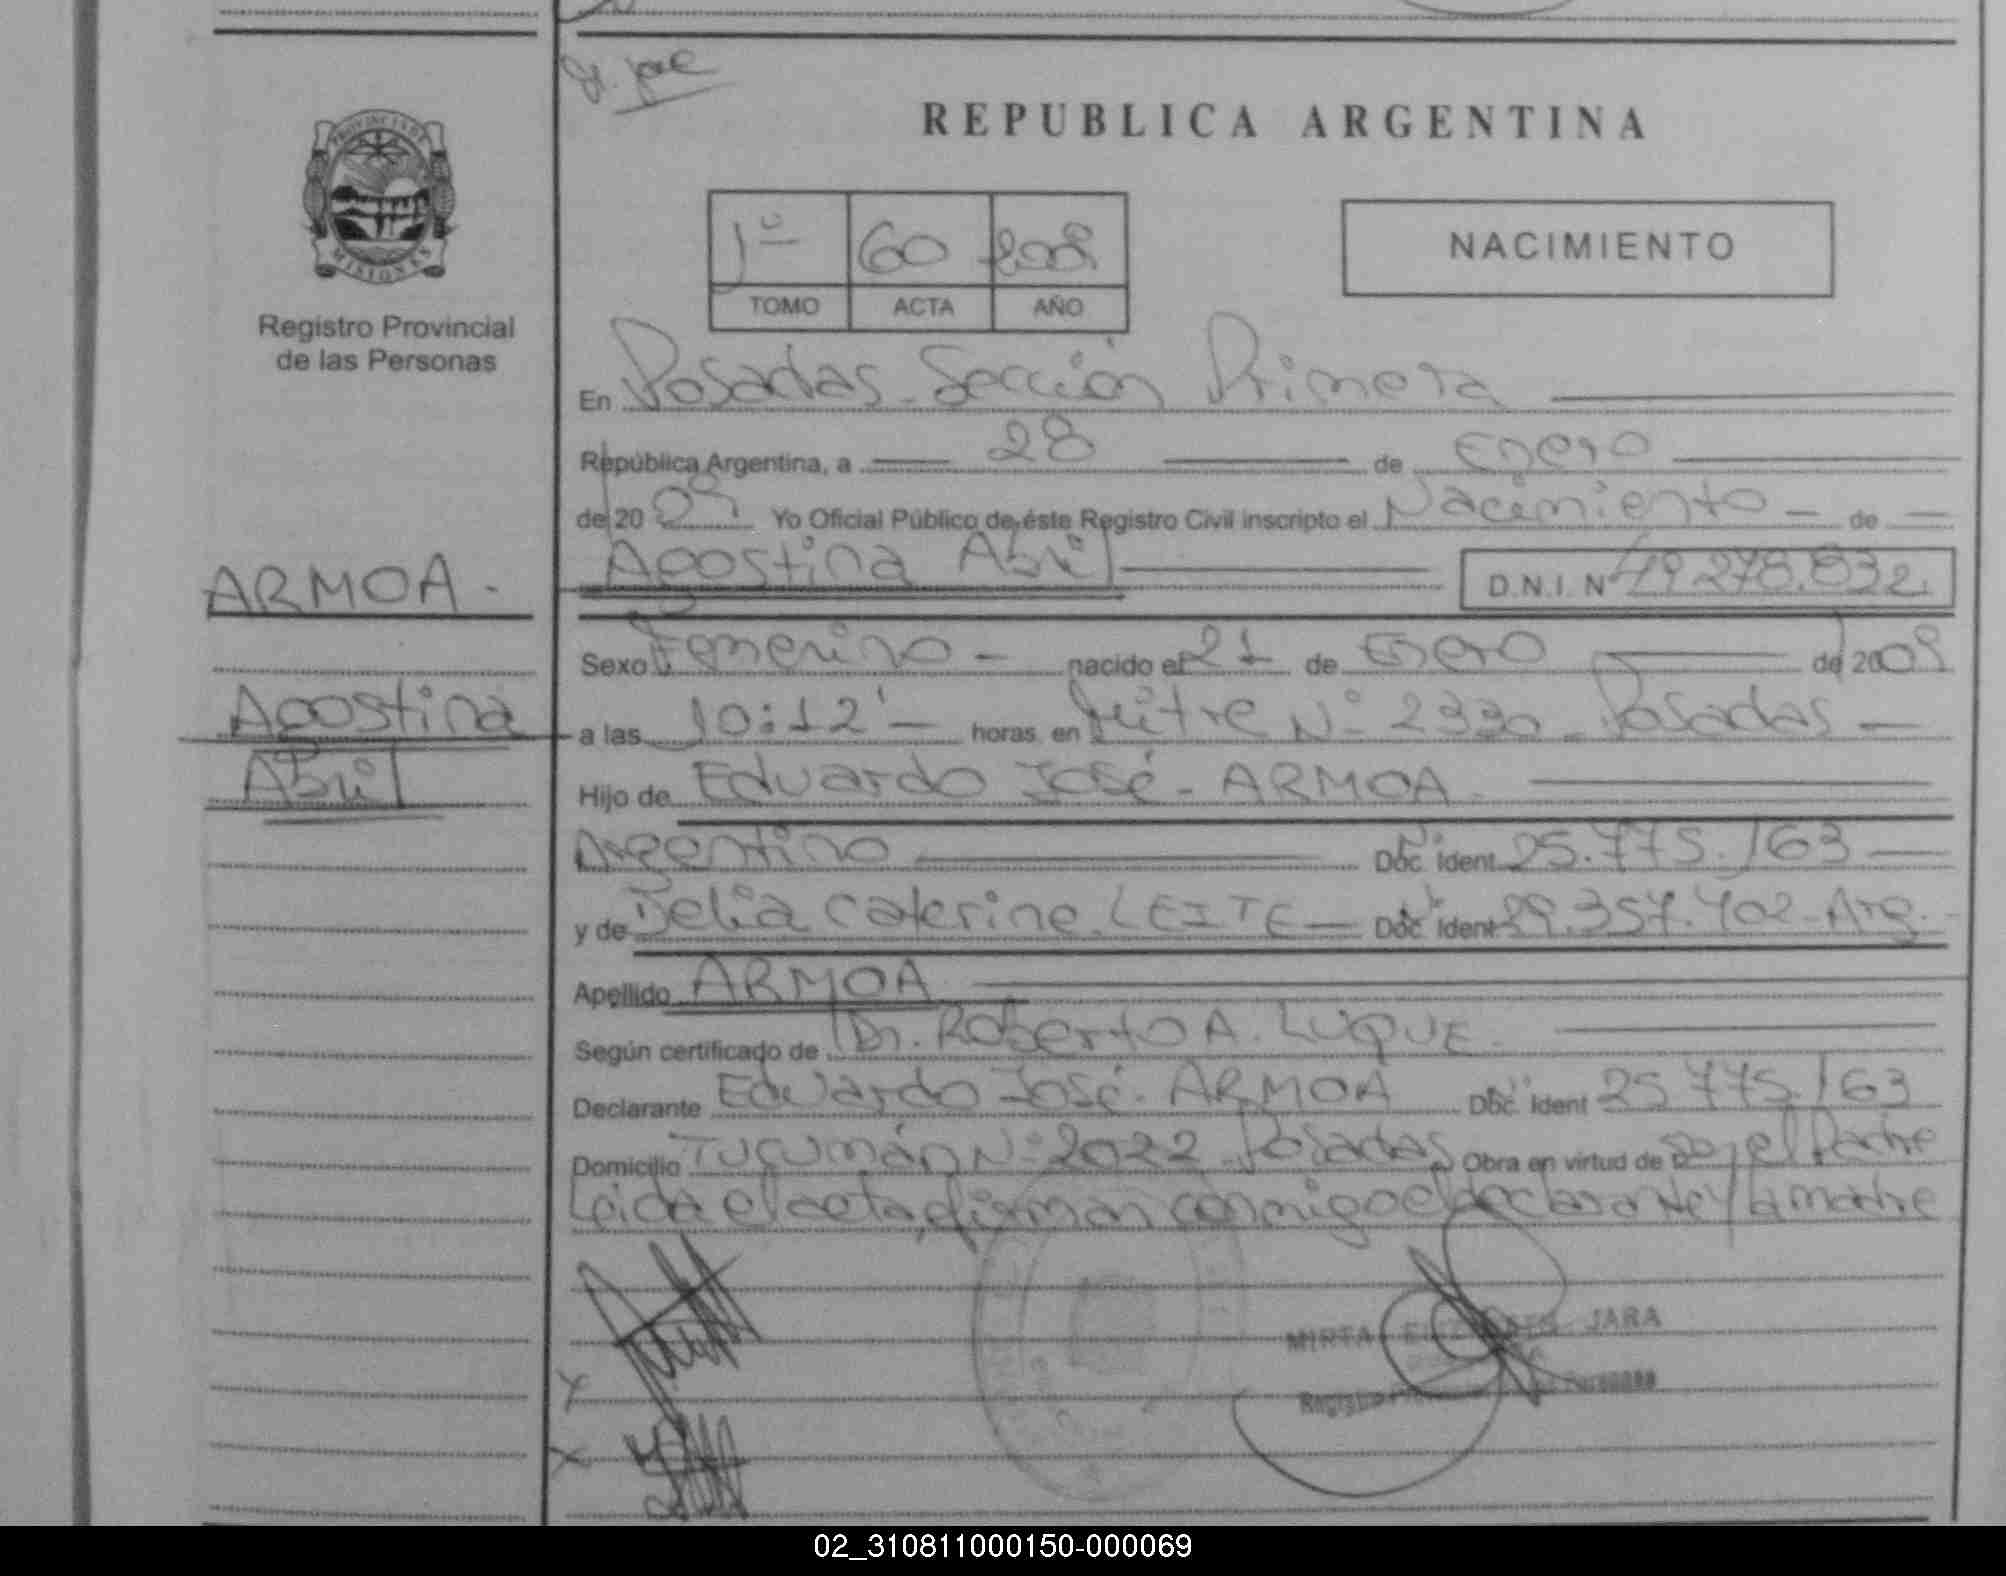 REPUBLICA ARGENTINA
PROVINCIA DE
MISIONES
Registro Provincial
de las Personas
1º 60 2009
TOMO ACTA AÑO
NACIMIENTO
En Posadas - Sección Primera
República Argentina, a 28 de Enero
de 2009 Yo Oficial Público de éste Registro Civil inscripto el Nacimiento - de -
Agostina Abril D.N.I. Nº 49.278.832.
ARMOA -
Agostina
Abril
Sexo Femenino - nacido el 21 de Enero de 2009
a las 10:12' - horas en Mitre Nº 2330 - Posadas -
Hijo de Eduardo José - ARMOA.
Argentino Doc. Ident. Nº 25.775.163
y de Delia Caterine. LEITE - Doc. Ident. Nº 29.357.402 - Arg. -
Apellido ARMOA
Según certificado de Dr. Roberto A. LUQUE.
Declarante Eduardo José. ARMOA Doc. Ident Nº 25.775.163
Domicilio Tucumán Nº 2022 - Posadas Obra en virtud de ser el Padre
Leida el acta, firman conmigo el declarante y la madre
MIRTA JARA
02_310811000150-000069